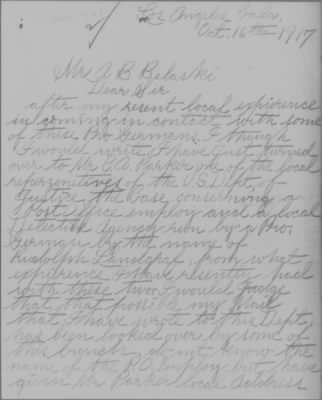 Los Angeles Cala.
Oct. 16th 1917
Mrs A B Belaski
Dear Sir
after my resent local expierence
in coming in contact with some
of these Pro Germans. I though
I would write. I have just turned
over to Mr. C.A. Parker one of the local
reperzenitives of the U.S. Dept. of
Justice the case conserning a
Post Office employ and a local
Detection Agency run by a Pro.
German by the name of
Rudolph Landgraf. from what
expirence I have resently had
with these two I would Judge
that that possible my Mail
that I have wrote to this Dept.
has been looked over by some of
this bunch, do not know the
name of the P.O. Employ but have
given Mr Parker local Address